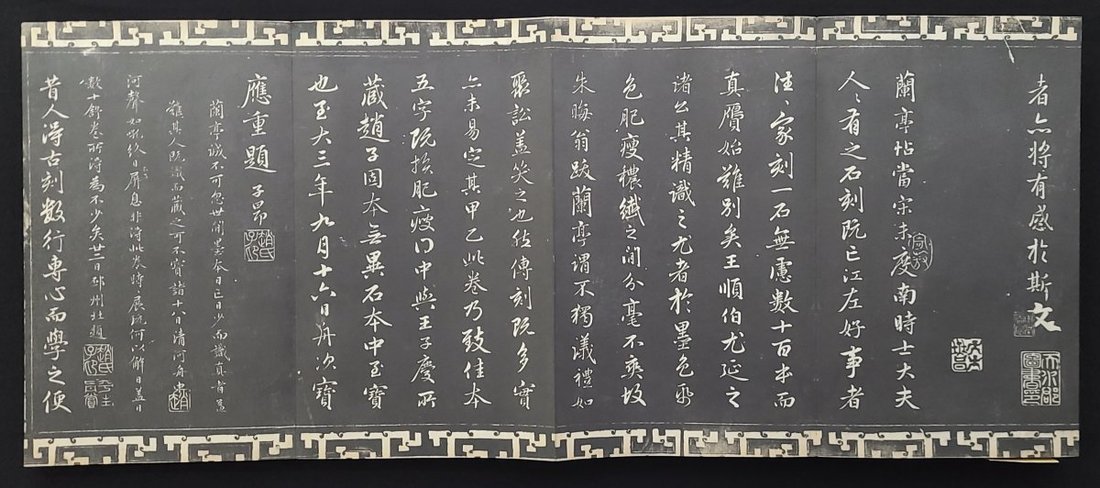 者亦將有感於斯文
天水郡圖書印
蘭亭帖當宋未度南時士大夫
人〻有之石刻既亡江左好事者
往〻家刻一石無慮數十百本而
真贗始難別矣王順伯尤延之
諸公其精識之尤者於墨色紙
色肥瘦穠纖之間分毫不爽故
朱晦翁跋蘭亭謂不獨議禮如
聚訟蓋笑之也然傳刻既多實
亦未易定其甲乙此卷乃致佳本
五字既損肥瘦得中與王子慶所
藏趙子固本無異石本中至寶
也至大三年九月十六日舟次寶
應重題 子昂
趙氏子昂
蘭亭誠不可忽世間墨本日亡日少而識真者蓋
難其人既識而藏之可不寶諸十八日清河舟
趙
河聲如吼終日屏息非得此卷時展玩何以解日蓋日
數十舒卷所得為不少矣廿二日邳州北題
趙氏子昂
昔人得古刻數行專心而學之便